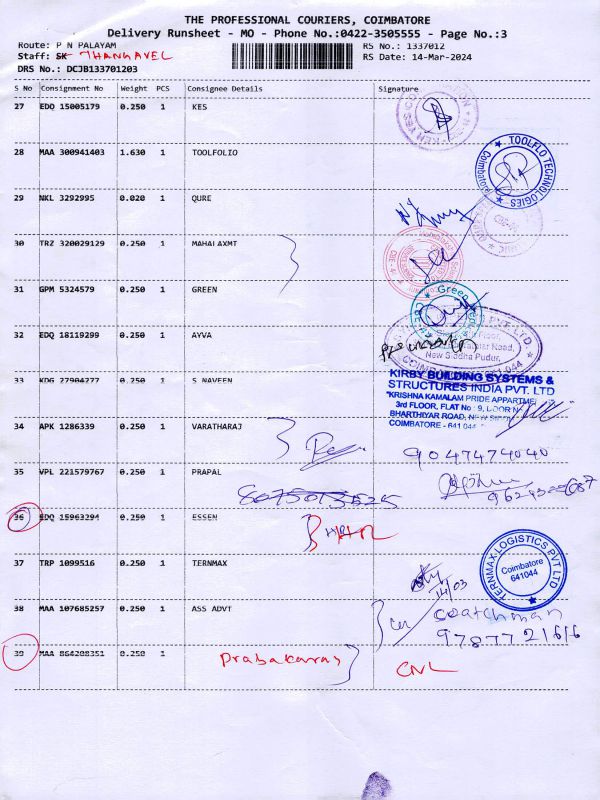 THE PROFESSIONAL COURIERS, COIMBATORE
Delivery Runsheet - MO - Phone No.:0422-3505555 - Page No.:3
Route: P N PALAYAM
RS No.: 1337012
Staff: SK THANGAVEL
RS Date: 14-Mar-2024
DRS No.: DCJB133701203
S No Consignment No Weight PCS Consignee Details Signature
27 EDQ 15005179 0.250 1 KES
28 MAA 300941403 1.630 1 TOOLFOLIO
TOOLFLO TECHNOLOGIES
Coimbatore
29 NKL 3292995 0.020 1 QURE
30 TRZ 320029129 0.250 1 MAHALAXMT
31 GPM 5324579 0.250 1 GREEN
Green
32 EDQ 18119299 0.250 1 AYVA
Floor,
Road,
New Siddha Pudur,
COIMBATORE - 641 044
33 KDG 27904277 0.250 1 S NAVEEN
KIRBY BUILDING SYSTEMS &
STRUCTURES INDIA PVT. LTD
"KRISHNA KAMALAM PRIDE APPARTMENTS
3rd FLOOR, FLAT No : 9, DOOR
BHARTHIYAR ROAD, NEW
COIMBATORE - 641 044
34 APK 1286339 0.250 1 VARATHARAJ
9047474040
35 VPL 221579767 0.250 1 PRAPAL
36 EDQ 15963294 0.250 1 ESSEN
37 TRP 1099516 0.250 1 TERNMAX
TERNMAX LOGISTICS PVT LTD
Coimbatore
641044
14/03
38 MAA 107685257 0.250 1 ASS ADVT
Coatchman
9787721616
39 MAA 864208351 0.250 1 Prabakaran CNL